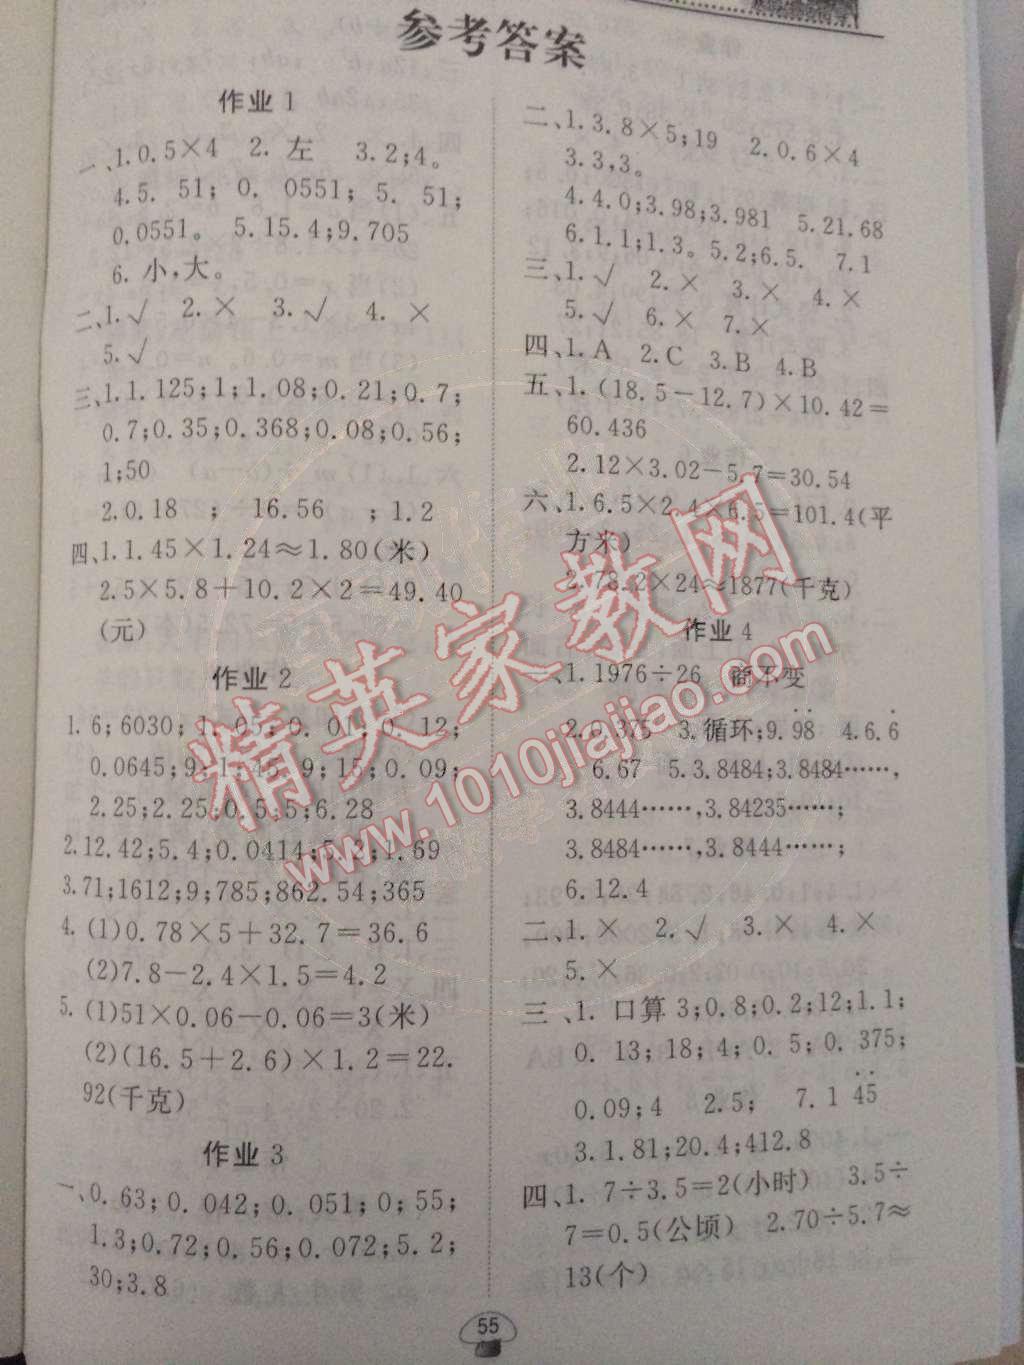 参考答案
作业1
一、1.0.5×4 2. 左 3.2;4。
4.5. 51; 0. 0551; 5. 51;
0.0551。 5.15.4;9.705
6. 小,大。
二、1.√ 2.× 3.√ 4. ×
5.√
三、1.1.125;1;1.08;0.21;0.7;
0.7;0.35;0.368;0.08;0.56;
1;50
2.0.18 ; 16.56 ;1.2
四、1.1.45×1.24≈1.80(米)
2.5×5.8+10.2×2=49.40
(元)
作业2
1.6;6030;1.05;0.01;0.12;
0.0645;9;1;45;9;15;0.09;
2.25;2.25;0.5;5;6.28
2.12.42;5.4;0.0414;5.2;1.69
3.71;1612;9;785;862.54;365
4.(1)0.78×5+32.7=36.6
(2)7.8-2.4×1.5=4.2
5.(1)51×0.06-0.06=3(米)
(2)(16.5+2.6)×1.2=22.
92(千克)
作业3
一、0.63;0.042;0.051;0;55;
1.3;0.72;0.56;0.072;5.2;
30;3.8
二、1.3.8×5;19 2.0.6×4
3.3,3。
4.4.0;3.98;3.981 5.21.68
6.1.1;1.3。5.2;6.5. 7.1
三、1.√ 2.× 3.× 4.×
5.√ 6.× 7.×
四、1.A 2.C 3.B 4.B
五、1.(18.5-12.7)×10.42=
60.436
2.12×3.02-5.7=30.54
六、1.6.5×2.4×6.5=101.4(平
方米)
2.78.2×24≈1877(千克)
作业4
一、1.1976÷26 商不变
2.0.375 3.循环;9.9̇8̇ 4.6.6̇
6.67 5.3.8484;3.8484……,
3.8444……,3.84235……;
3.8484……,3.8444……;
6.12.4
二、1.× 2.√ 3.× 4.×
5.×
三、1. 口算 3;0.8;0.2;12;1.1;
0.13;18;4;0.5;0.375;
0.09;4 2.5; 7.1 4̇5̇
3.1.81;20.4;412.8
四、1. 7÷3.5=2(小时) 3.5÷
7=0.5(公顷) 2.70÷5.7≈
13(个)
55
精英家教网
www.1010jiajiao.com